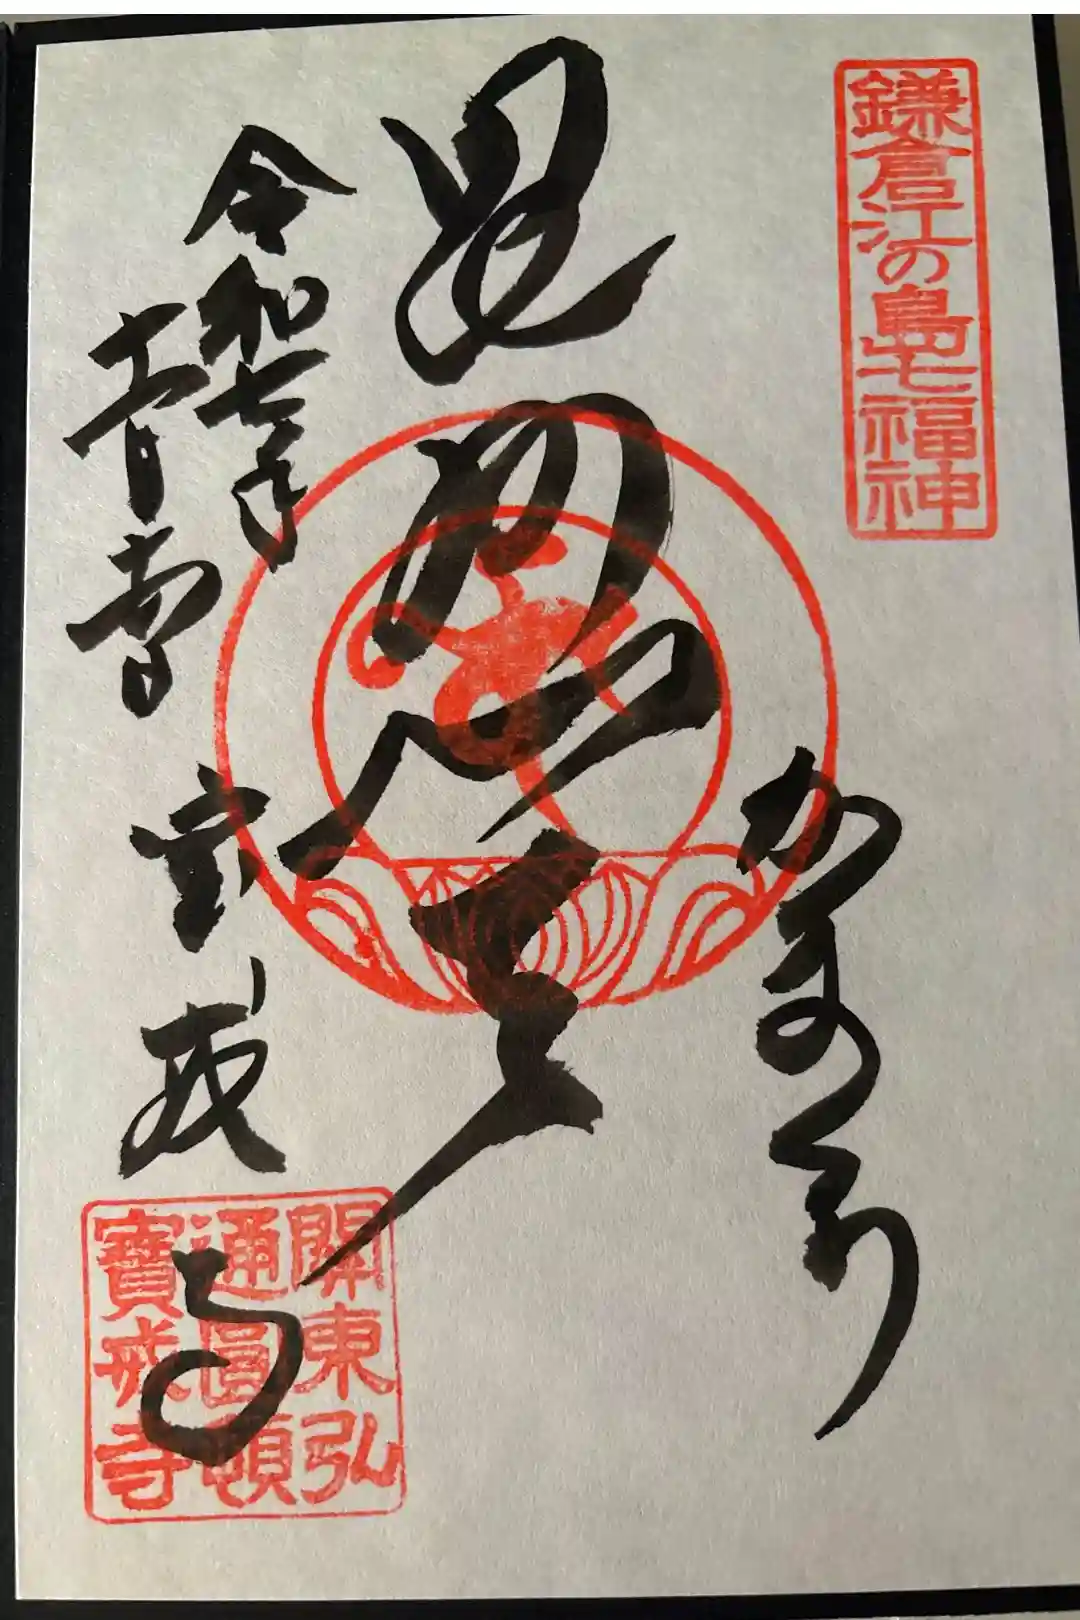 鎌倉江の島七福神
かまくら
毘沙門天
令和七年
十一月
宝戒寺
關東弘
通圓頓
寶戒寺